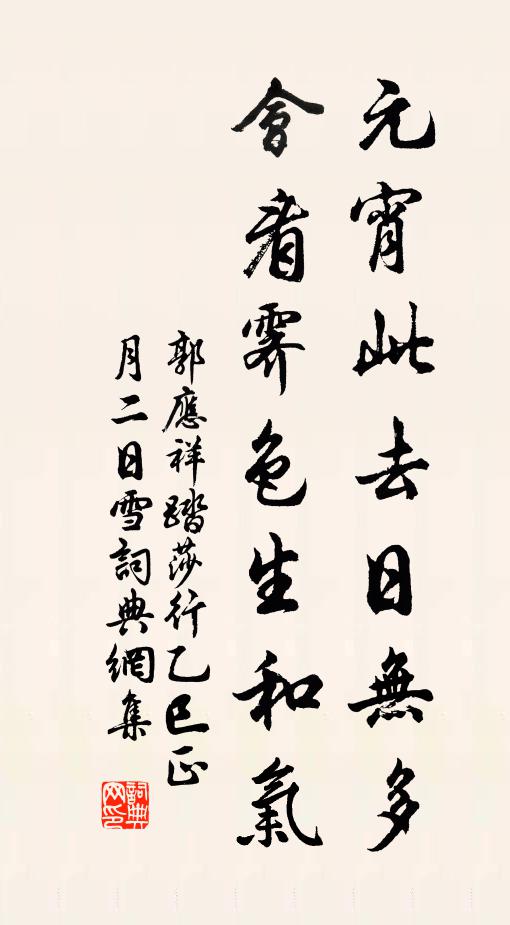 元宵此去日無多
會看霽色生和氣
郭應祥踏莎行乙巳正
月二日雪詞典網集
詞典网印